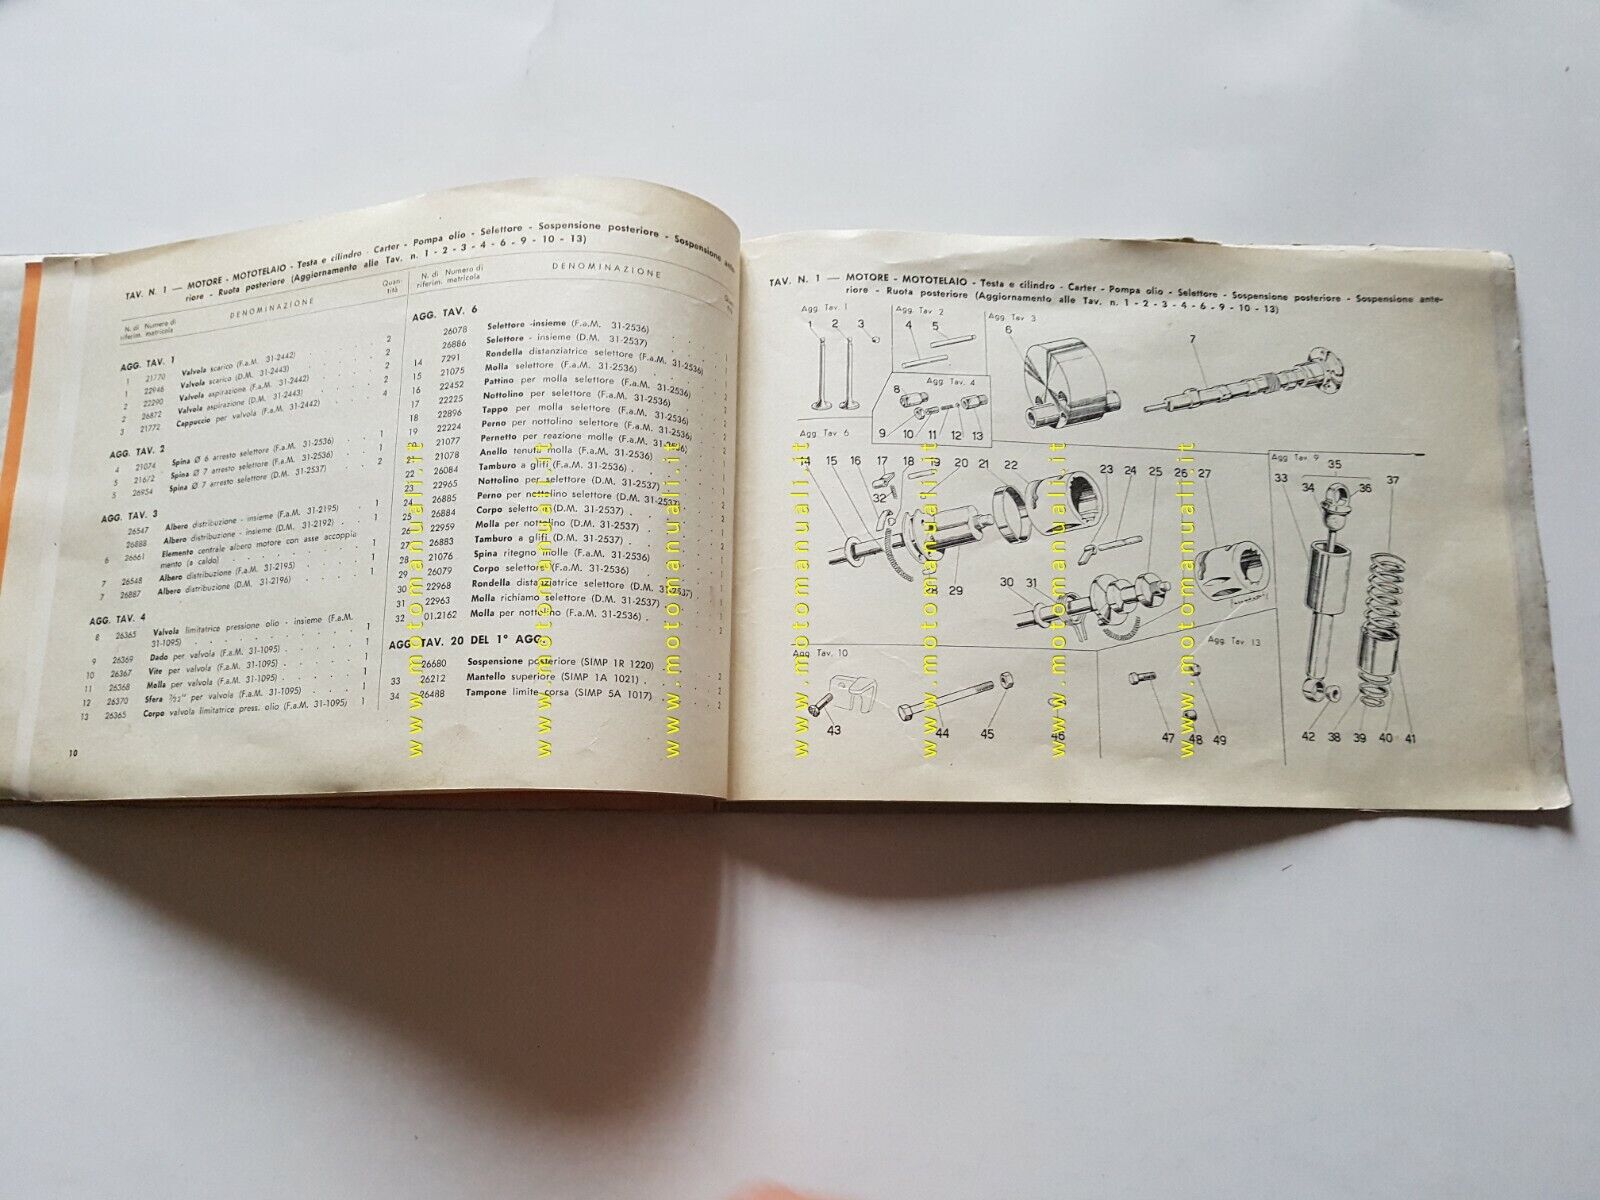 TAV. N. 1 — MOTORE - MOTOTELAIO - Testa e cilindro - Carter - Pompa olio - Selettore - Sospensione posteriore - Sospensione ante-
riore - Ruota posteriore (Aggiornamento alle Tav. n. 1 - 2 - 3 - 4 - 6 - 9 - 10 - 13)
N. di riferim. Numero di matricola DENOMINAZIONE Quan- tità
AGG. TAV. 1
1 21770 Valvola scarico (F.a.M. 31-2442) 2
1 22946 Valvola scarico (D.M. 31-2443) 2
2 22290 Valvola aspirazione (F.a.M. 31-2442) 2
2 26872 Valvola aspirazione (D.M. 31-2443) 2
3 21772 Cappuccio per valvola (F.a.M. 31-2442) 4
AGG. TAV. 2
4 21074 Spina Ø 6 arresto selettore (F.a.M. 31-2536) 1
5 21672 Spina Ø 7 arresto selettore (F.a.M. 31-2536) 1
5 26954 Spina Ø 7 arresto selettore (D.M. 31-2537) 2
AGG. TAV. 3
26547 Albero distribuzione - insieme (F.a.M. 31-2195) 1
26888 Albero distribuzione - insieme (D.M. 31-2192) 1
6 26661 Elemento centrale albero motore con asse accoppia-
mento (a caldo) 1
7 26548 Albero distribuzione (F.a.M. 31-2195) 1
7 26887 Albero distribuzione (D.M. 31-2196) 1
AGG. TAV. 4
8 26365 Valvola limitatrice pressione olio - insieme (F.a.M.
31-1095) 1
9 26369 Dado per valvola (F.a.M. 31-1095) 1
10 26367 Vite per valvola (F.a.M. 31-1095) 1
11 26368 Molla per valvola (F.a.M. 31-1095) 1
12 26370 Sfera 7/32" per valvola (F.a.M. 31-1095) 1
13 26365 Corpo valvola limitatrice press. olio (F.a.M. 31-1095) 1
10
N. di riferim. Numero di matricola DENOMINAZIONE
AGG. TAV. 6
26078 Selettore -insieme (F.a.M. 31-2536)
26886 Selettore - insieme (D.M. 31-2537)
14 7291 Rondella distanziatrice selettore (F.a.M. 31-2536)
15 21075 Molla selettore (F.a.M. 31-2536)
16 22452 Pattino per molla selettore (F.a.M. 31-2536)
17 22225 Nottolino per selettore (F.a.M. 31-2536)
18 22896 Tappo per molla selettore (F.a.M. 31-2536)
19 22224 Perno per nottolino selettore (F.a.M. 31-2536)
21077 Pernetto per reazione molle (F.a.M. 31-2536)
21 21078 Anello tenuta molla (F.a.M. 31-2536)
22 26084 Tamburo a glifi (F.a.M. 31-2536)
23 22965 Nottolino per selettore (D.M. 31-2537)
24 26885 Perno per nottolino selettore (D.M. 31-2537)
25 26884 Corpo selettore (D.M. 31-2537)
26 22959 Molla per nottolino (D.M. 31-2537)
27 26883 Tamburo a glifi (D.M. 31-2537)
28 21076 Spina ritegno molle (F.a.M. 31-2536)
29 26079 Corpo selettore (F.a.M. 31-2536)
30 22968 Rondella distanziatrice selettore (D.M. 31-2537)
31 22963 Molla richiamo selettore (D.M. 31-2537)
32 01.2162 Molla per nottolino (F.a.M. 31-2536)
AGG. TAV. 20 DEL 1° AGG.
26680 Sospensione posteriore (SIMP 1R 1220)
33 26212 Mantello superiore (SIMP 1A 1021) 2
34 26488 Tampone limite corsa (SIMP 5A 1017) 2
TAV. N. 1 — MOTORE - MOTOTELAIO - Testa e cilindro - Carter - Pompa olio - Selettore - Sospensione posteriore - Sospensione ante-
riore - Ruota posteriore (Aggiornamento alle Tav. n. 1 - 2 - 3 - 4 - 6 - 9 - 10 - 13)
Agg Tav. 1
1 2 3
Agg Tav 2
4 5
Agg Tav 3
6 7
Agg Tav. 4
8
9 10 11 12 13
Agg Tav 6
14 15 16 17 18 19 20 21 22 23 24 25 26 27
32
28 29
30 31
Agg Tav. 9
35
33 34 36 37
42 38 39 40 41
Agg Tav. 10
43 44 45 46
Agg Tav 13
47 48 49
www.motomanuali.it
www.motomanuali.it
www.motomanuali.it
www.motomanuali.it
www.motomanuali.it
www.motomanuali.it
www.motomanuali.it